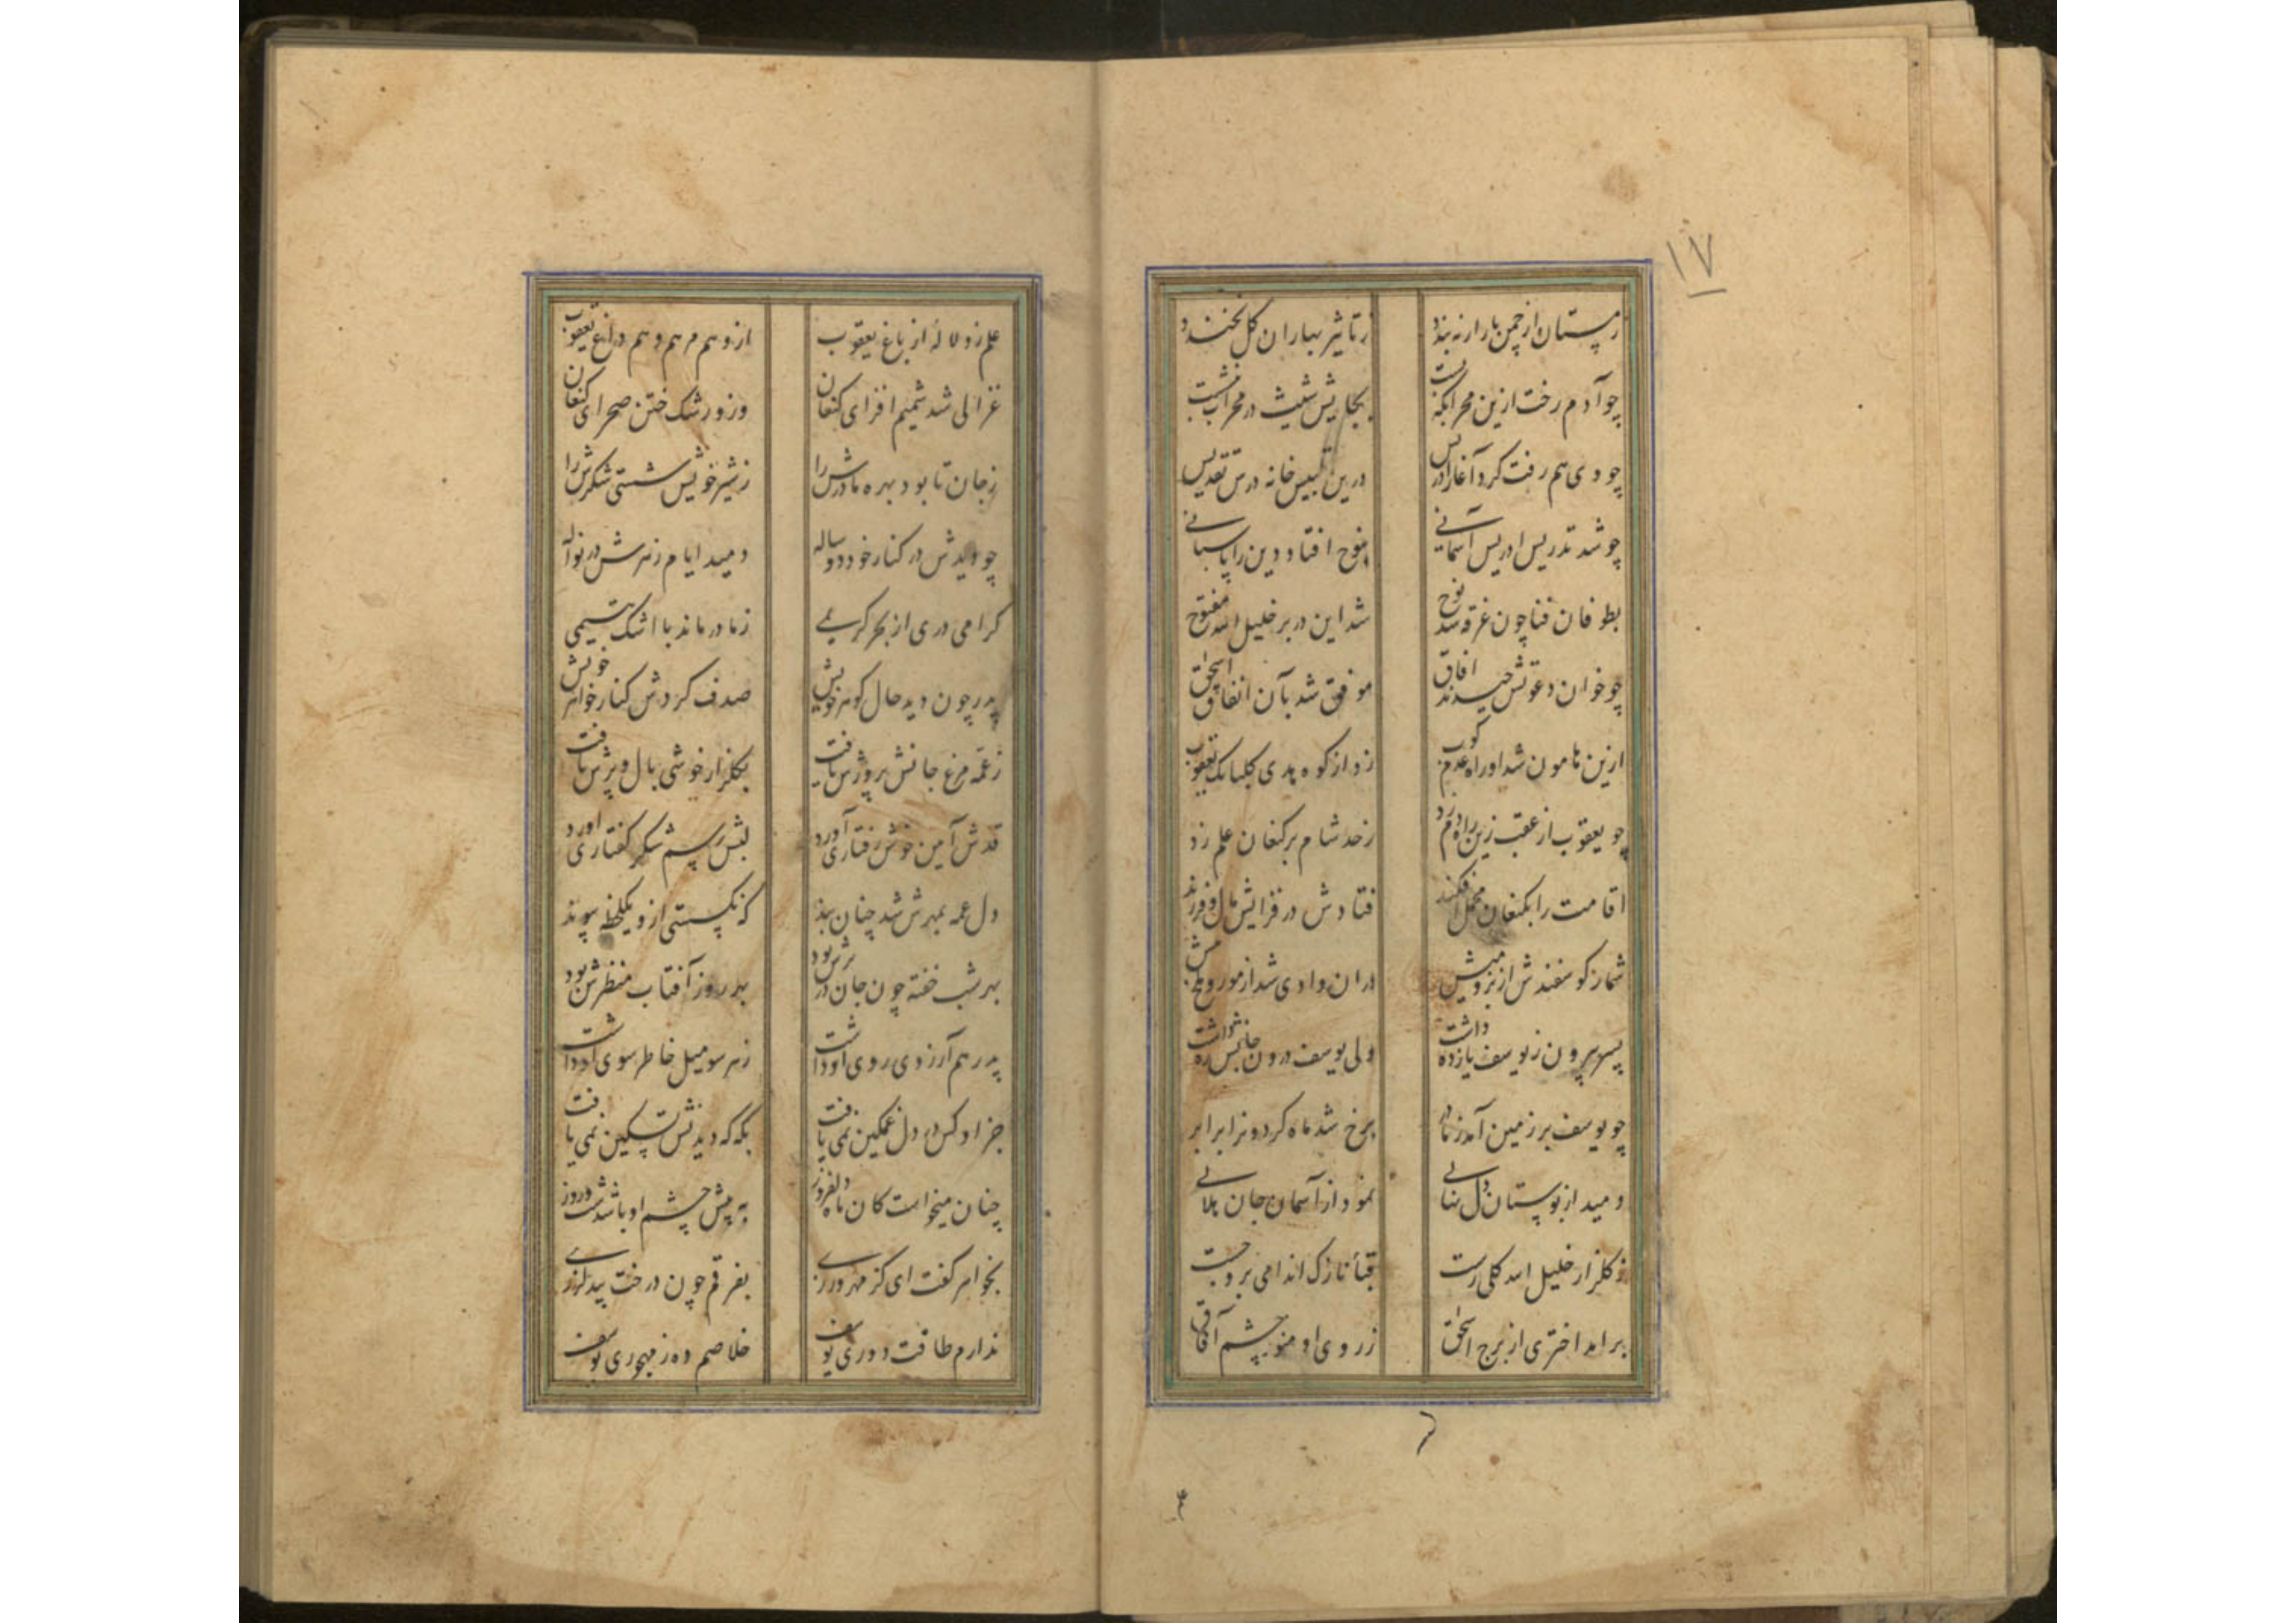 ١٧
زمستان از چمن بار ار نه بندد ز تاثیر بهاران گل نخندد
چو آدم رخت ازین محرابگه بست بجایش شیث در محراب بنشست
چو وی هم رفت کرد آغاز ادریس درین تلبیس خانه درس تقدیس
چو شد تدریس ادریس آسمانی بنوح افتاد دین را پاسبانی
بطوفان فنا چون غرقه شد نوح شد این در بر خلیل الله مفتوح
چو خوان دعوتش چیدند افاق موفق شد بآن انفاق اسحق
ازین هامون شد او راه عدم کوب زد از کوه هدی گلبانک یعقوب
چو یعقوب از عقب زین راه دم زد ز حد شام بر کنعان علم زد
اقامت را بکنعان محمل افکند فتادش در فزایش مال و فرزند
شمار کوسفندش از بز و میش دران وادی شد از مور و ملخ بیش
پسر بیرون ز یوسف یازده داشت ولی یوسف درون جانش ره داشت
چو یوسف بر زمین آمد ز مادر برخ شد ماه کردون را برابر
دمید از بوستان دل نهالی نمود از آسمان جان هلالی
ز کلزار خلیل الله کلی رست قبا نازک اندامی برو چست
برامد اختری از برج اسحق ز روی او منور چشم آفاق
علم زد لاله از باغ یعقوب ازو هم مرهم و هم داغ یعقوب
غزالی شد شمیم افزای کنعان وزو رشک ختن صحرای کنعان
ز جان تا بود بهره مادرش را ز شیر خویش شستی شکرش را
چو دیدش در کنار خود دو ساله دمید ایام زهرش در نواله
کرامی دری از بحر کریمی ز مادر ماند با اشک یتیمی
پدر چون دید حال کوهر خویش صدف کردش کنار خواهر خویش
ز عمه مرغ جانش پرورش یافت بکلزار خوشی بال و پرش یافت
قدش آیین خوش رفتاری آورد لبش رسم شکر کفتاری اورد
دل عمه بمهرش شد چنان بند که نکسستی ازو یکلحظه پیوند
بهر شب خفته چون جان در برش بود بهر روز آفتاب منظرش بود
پدر هم آرزوی روی او داشت ز هر سو میل خاطر سوی او داشت
جز او کس در دل غمکین نمی یافت بکه که دیدنش تسکین نمی یافت
چنان میخواست کان ماه دلفروز به پیش چشم او باشد شب و روز
بخواهر کفت ای کز مهر ورزی بفرقم چون درخت بید لرزی
ندارم طاقت دوری یوسف خلاصم ده ز مهجوری یوسف